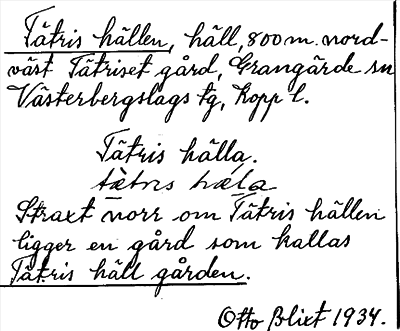 Tätris hällen, häll, 800 m. nord-
väst Tätriset gård, Grangärde sn
Västerbergslags tg, Kopp l.
Tätris hälla.
tætris hæla
Straxt norr om Tätris hällen
ligger en gård som kallas
Tätris häll gården.
Otto Blixt 1934.